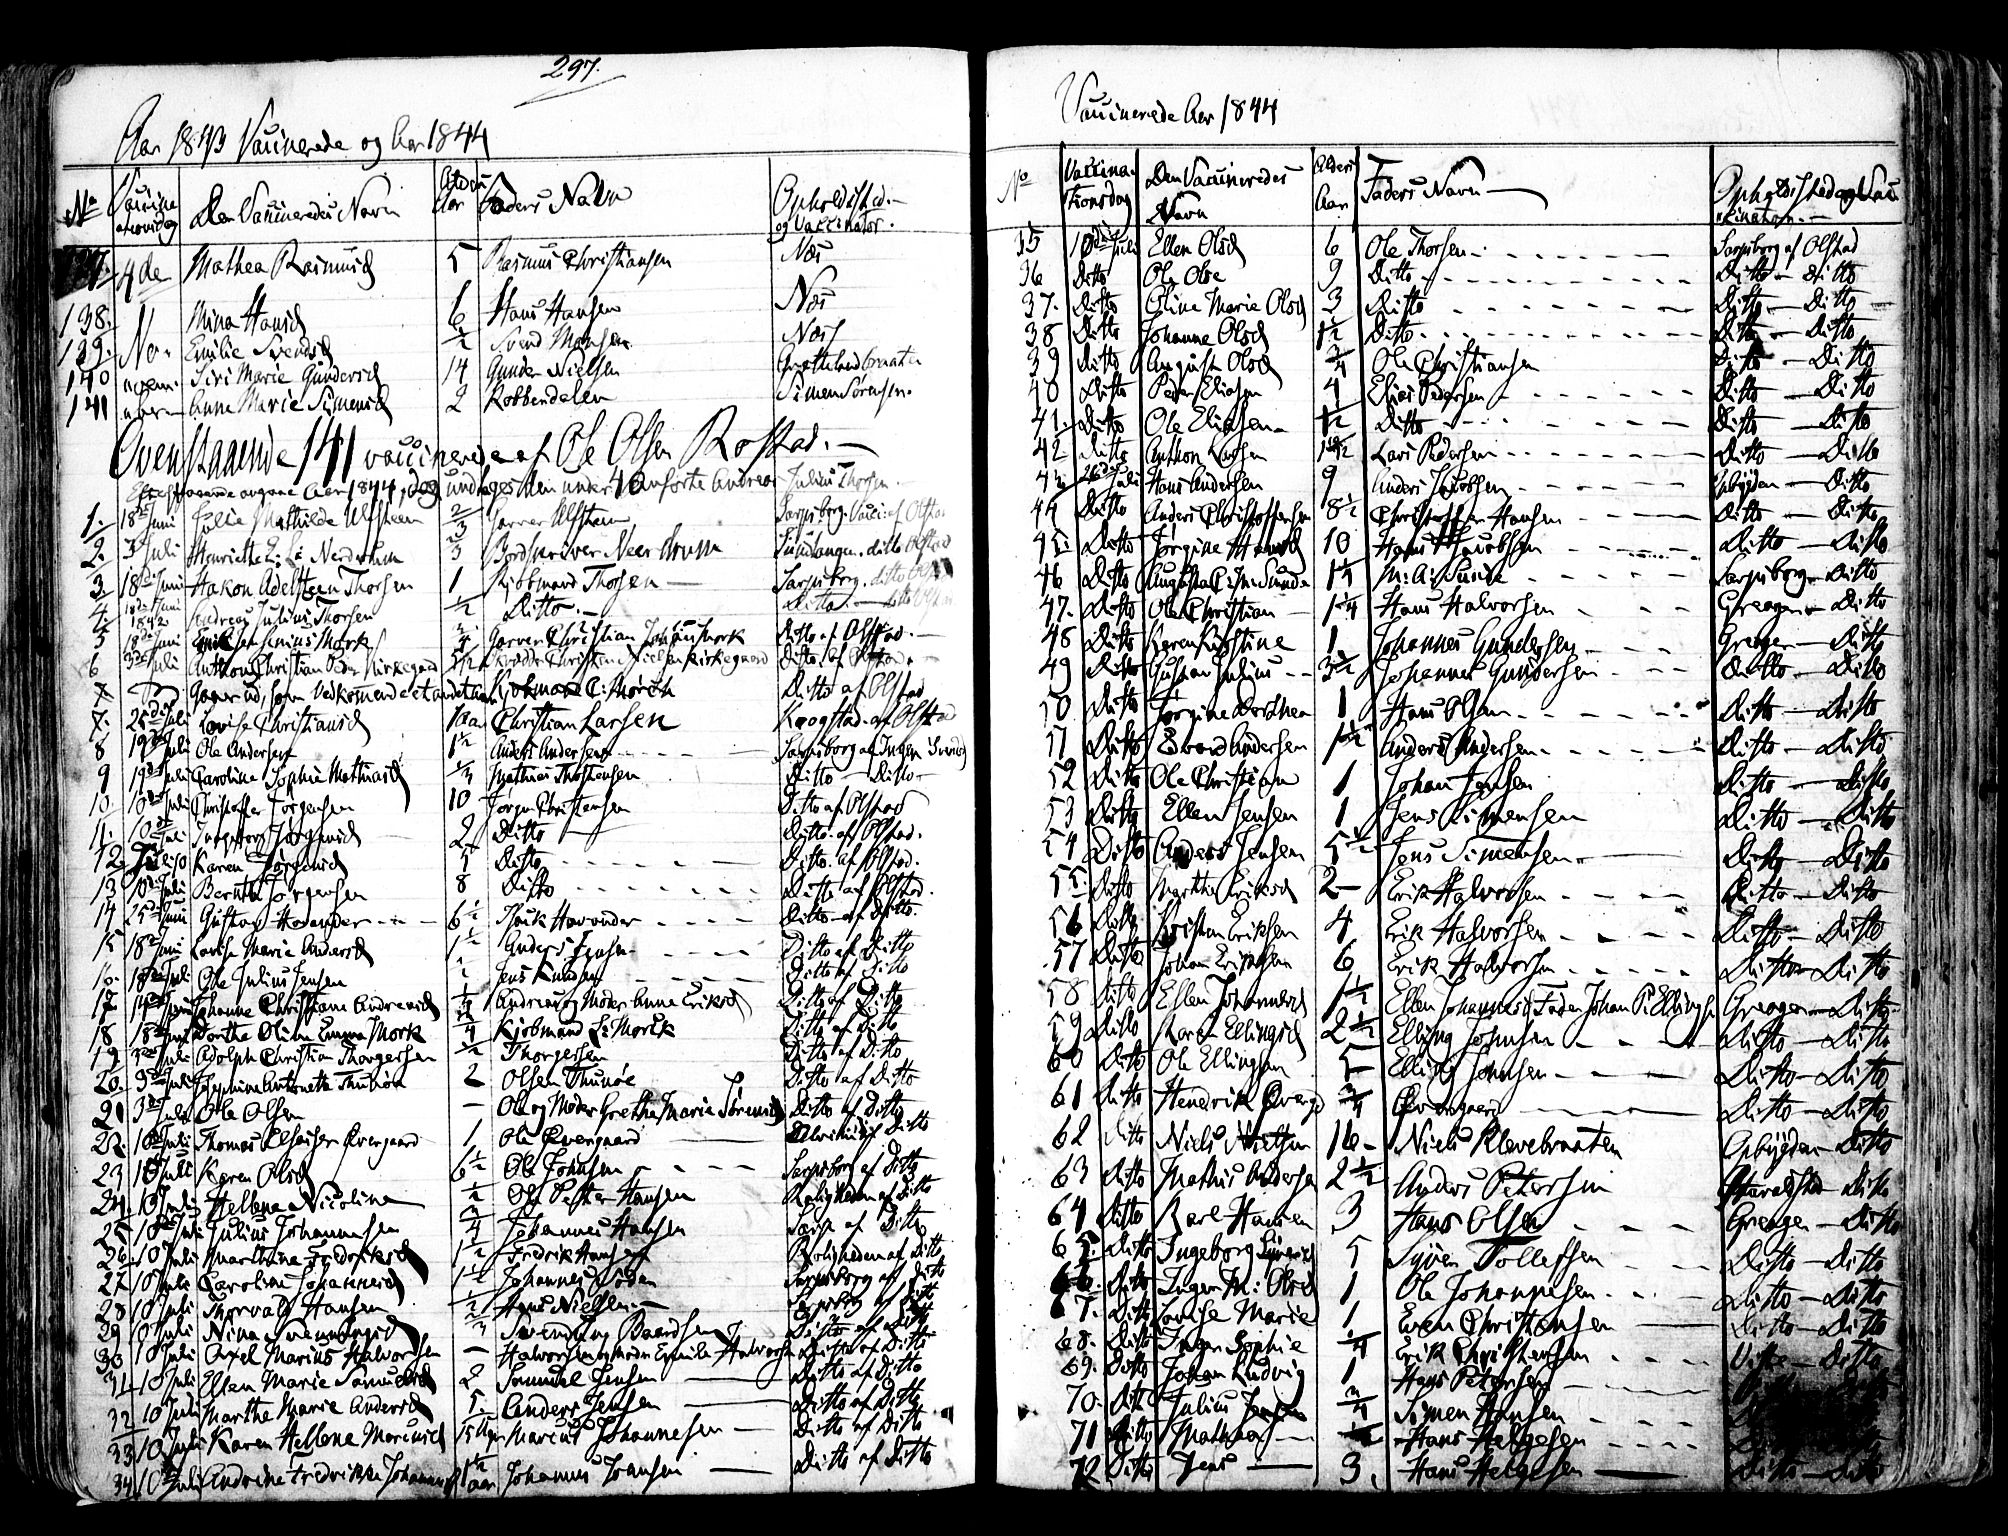 297.
Aar 1843 Vaccinerede og Aar 1844
No Vaccinationsdag Den Vaccineredes Navn Alder Aar Faders Navn Opholdsted og Vaccinator.
4de Mathea Rasmusd 5 Rasmus Christiansen Næs
138. Mina Hansd 6 Hans Hansen Næs
139. Emilie Svendsd 1/2 Svend Næs
140 Siri Marie Gundersd 14 Gunder Nielsen
141 Anne Marie Simensd 2 Robbendalen Simen Sørensen.
Ovenstaaende 141 vaccinerede af Ole Olsen Rostad.
Julius Thorsen.
1. 18de Juni Julie Mathilde Ulfsteen Garver Ulfsteen Sarpsborg. Vacc: af Olstad
2. 3de Juli Henriette E: L: 2/3 ditto Olstad
3. 18de Juni Hakon Adelsteen Thorsen 1 Kjøbmand Thorsen Sarpsborg. ditto
4. 18de Juni 1842 Andreas Julius Thorsen 1/2 Ditto. Ditto.
5 18de Juni Mørk 3/4 Garver Christian Mørk Ditto af Olstad.
6 3de Juli Anthon Christian Peder Kirkegaard Christian Nielsen Kirkegaard Ditto. af Olstad.
7 Gaaer ud, som Vedkommende et andet Kjøbmand C: Mørch Ditto af Olstad
7. 25de Juli Lovise Christiansd 1 Aar Christian Larsen af Olstad
8 19de Juli Ole Andersen 1 1/2 Anders Andersen Sarpsborg af Inger Svendsd
9 19de Juli Caroline Sophie Mathiasd 1/3 Mathias Thostensen Ditto Ditto
10 10de Juli Christoffer Jørgensen 10 Jørgen Christensen Ditto af Olstad
11. 10de Juli Jørgensd 2 Ditto Ditto. af Olstad.
12. Karen Jørgensd 5 Ditto Ditto. af Olstad.
13 10de Juli Jørgensen 8 Ditto Ditto af Olstad.
14 25de Juni Gustav 6 1/2 Ditto af Ditto.
15 18de Juni Lovise Marie Andersd 1 1/2 Anders Jensen Ditto af Ditto
16. 18de Juli Ole Julius Jensen 1/2 Jens Ditto af Ditto
17 Johanne Christiane Andreasd Andreas og Moder Anne Eriksd Ditto af Ditto
18 18de Dorthe Oline Emma Mørk 3/4 Kjøbmand C: Mørk Ditto af Ditto
19 3de Juli Adolph Christian Thorgersen 1/2 Thorgersen Ditto af Ditto
20. 3de Juli Josephine Antonette Thunøe 2 Olsen Thunøe Ditto af Ditto
21 3de Juli Ole Olsen - Ole og Moder Grethe Marie Sørensd Ditto af Ditto
22. 10de Juli Thomas Elhaisen Øvergaard 1 Ole Øvergaard af Ditto
23 10de Juli Karen Olsd 6 1/2 Ole Johnsen Sarpsborg af Ditto
24. 10 Juli Hellene Nicoline 1/2 Ole Petter Hansen Roligheden af Ditto
25 10de Juli Julius Johannesen 3/4 Johannes Hansen af Ditto
26. 10 Juli Marthine Fredriksd 1 1/2 Fredrik Hansen Roligheden af Ditto
27 10 Juli Caroline Johannesd 1 1/2 Johannes Sarpsborg af Ditto
28 10 Juli Thorvald Hansen 1/2 Hans Nielsen Sarpsborg af Ditto
29 10 Juli Nina Svenningsd 2/3 Svenning Baardsen Ditto af Ditto
30 10 Juli Axel Marius Halvorsen - Halvorsen og Moder Emilie Halvorsd Ditto af Ditto
31 10 Juli Ellen Marie Samuelsd 2 Samuel Jensen Ditto af Ditto
32 10 Juli Marthe Marie Andersd 5. Anders Jensen Ditto af Ditto
33 10 Juli Karen Hellene Mariusd 15 Uger Marius Johannesen Ditto af Ditto
34 10de Juli Andrine Fredrikke Johannesd 1 1/2 aar Johannes Ditto af Ditto
Vaccinerede Aar 1844
No Vaccinationsdag Den Vaccineredes Navn Alder Aar Faders Navn Opholdsted og Vaccinator.
35 10de Juli Ellen Olsd 6 Ole Thorsen Sarpsborg af Olstad
36 Ditto Ole Olse 9 Ditto Ditto ditto
37. Ditto Oline Marie Olsd 3 Ditto Ditto Ditto
38 Ditto Johanne Olsd 1 1/2 Ditto Ditto Ditto
39 Ditto August Olsd 3/4 Ole Christiansen Ditto Ditto
40 Ditto Peder Eliasen 4 Elias Pedersen Ditto Ditto
41. Ditto Ole Eliasen 1/2 Ditto Ditto Ditto
42 Ditto Anthon Larsen 1 1/2 Lars Pedersen Ditto Ditto
43 Juli Hans Andersen 9 Anders Jacobsen Opbygden Ditto
44 Ditto Anders Christoffersen 8 1/2 Christoffer Hansen Ditto Ditto
45. Ditto Jørgine Hansd 10 Hans Jacobsen Ditto Ditto
46 Ditto Augusta C: M: Sunde M: A: Sunde Sarpsborg Ditto
47. Ditto Ole Christian 1 1/4 Hans Halvorsen Greager Ditto
48 Ditto Karen Kirstine 1 Johannes Gundersen Greager Ditto
49 Ditto Gustav Julius 3 1/2 Johannes Gundersen Ditto Ditto
50 Ditto Jørgine Dorthea 1 Hans Olsen Ditto Ditto
51 Ditto Edvard Andersen 1 1/2 Anders Andersen Ditto Ditto
52 Ditto Ole Christian 1 Johan Jensen Ditto Ditto
53 Ditto Ellen Jensen 1 Jens Simensen Ditto Ditto
54 Ditto Anders Jensen 5 1/2 Jens Simensen Ditto Ditto
55 Ditto Marthe Eriksd 2 Erik Halvorsen Ditto Ditto
56 Ditto Kristian Eriksen 4 Erik Halvorsen Ditto Ditto
57 Ditto Johan Eriksen 6 Erik Halvorsen Ditto Ditto
58 Ditto Ellen Johannesd 1 1/2 Ellen Johannesd Fader Johan P: Ellingsen Greager Ditto
59 Ditto Karen Ellingsd 2 1/2 Elling Johnsen Ditto Ditto
60 Ditto Ole Ellingsen 5 Elling Johnsen Ditto Ditto
61 Ditto Hendrik Øverg 3/4 Øvergaard Ditto Ditto
62 Ditto Niels Nielsen 16 Niels Klevebraaten Opbygden Ditto
63 Ditto Mathis Andersen 2 1/2 Anders Petersen Ditto
64 Ditto Karl Hansen 3 Hans Olsen Greager Ditto
65. Ditto Ingeborg 5 Syver Tollefsen Ditto Ditto
66. Ditto Inger M: Olsd 1 Ole Johannesen Ditto Ditto
67. Ditto Lovise Marie 1 Even Christensen Ditto Ditto
68. Ditto Inger Sophie 1/4 Erik Christensen Ditto Ditto
69. Ditto Johan Ludvig 1 Hans Petersen
70. Ditto Julius 3/4 Simen Hansen
71 Ditto Mathea Hans Helgesen
72 Ditto Jens 3. Hans Helgesen Ditto Ditto